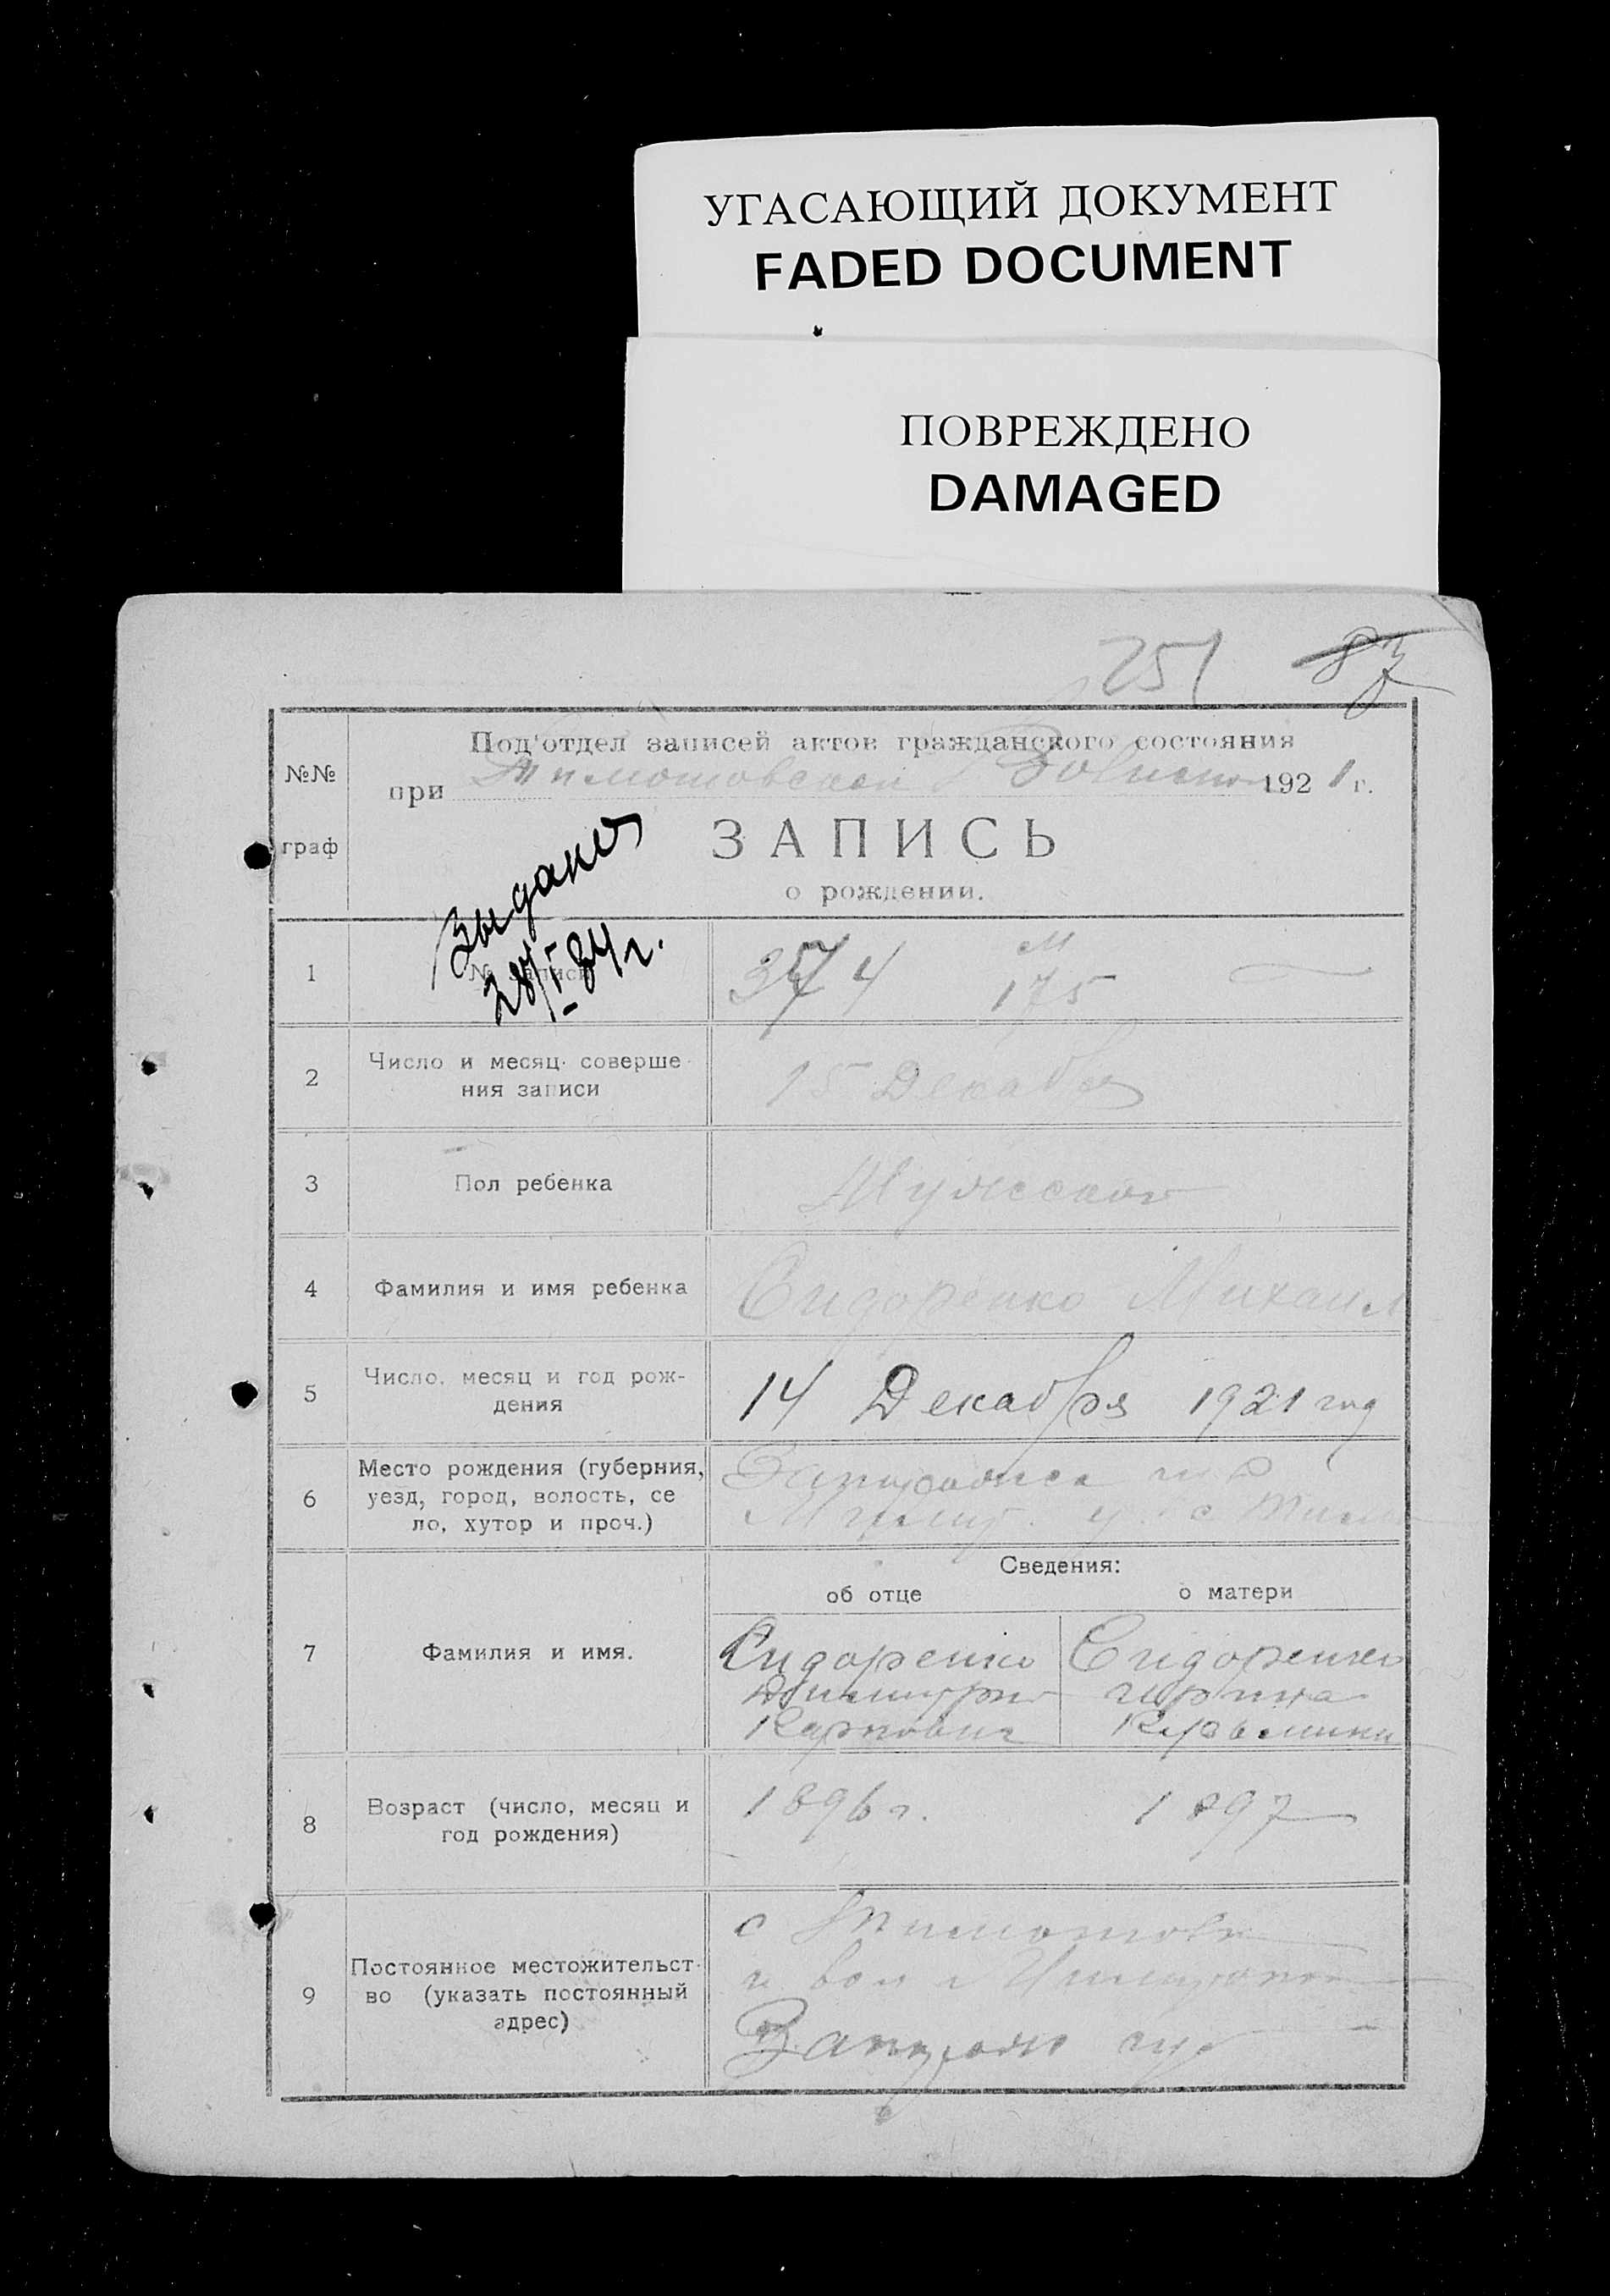 УГАСАЮЩИЙ ДОКУМЕНТ
FADED DOCUMENT
ПОВРЕЖДЕНО
DAMAGED
251 87
№№ граф
Под'отдел записей актов гражданского состояния
при Тимошовской 1921 г.
ЗАПИСЬ
о рождении.
Выдано
28/V-84 г.
1 № записи 374 М 175
2 Число и месяц соверше-
ния записи
15 Декабря
3 Пол ребенка Мужской
4 Фамилия и имя ребенка Сидоренко Михаил
5 Число, месяц и год рож-
дения
14 Декабря 1921 год
6 Место рождения (губерния,
уезд, город, волость, се
ло, хутор и проч.)
у. с
Сведения:
об отце о матери
7 Фамилия и имя.
Сидоренко Сидоренко
Димитрий
Карпович
8 Возраст (число, месяц и
год рождения)
1896 г. 1897
9 Постоянное местожительст-
во (указать постоянный
адрес)
с
и вол
губ